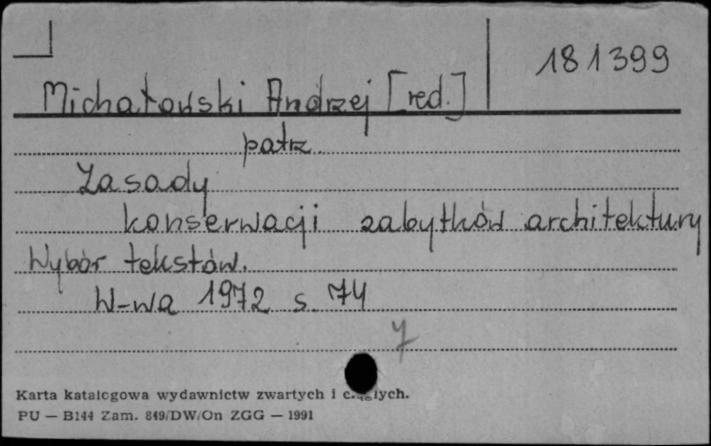 181399
Michałowski Andrzej [red.]
patrz
Zasady
konserwacji zabytków architektury
Wybór tekstów.
W-wa 1972 s. 74
7
Karta katalogowa wydawnictw zwartych i
PU — B144 Zam. 849/DW/On ZGG — 1991